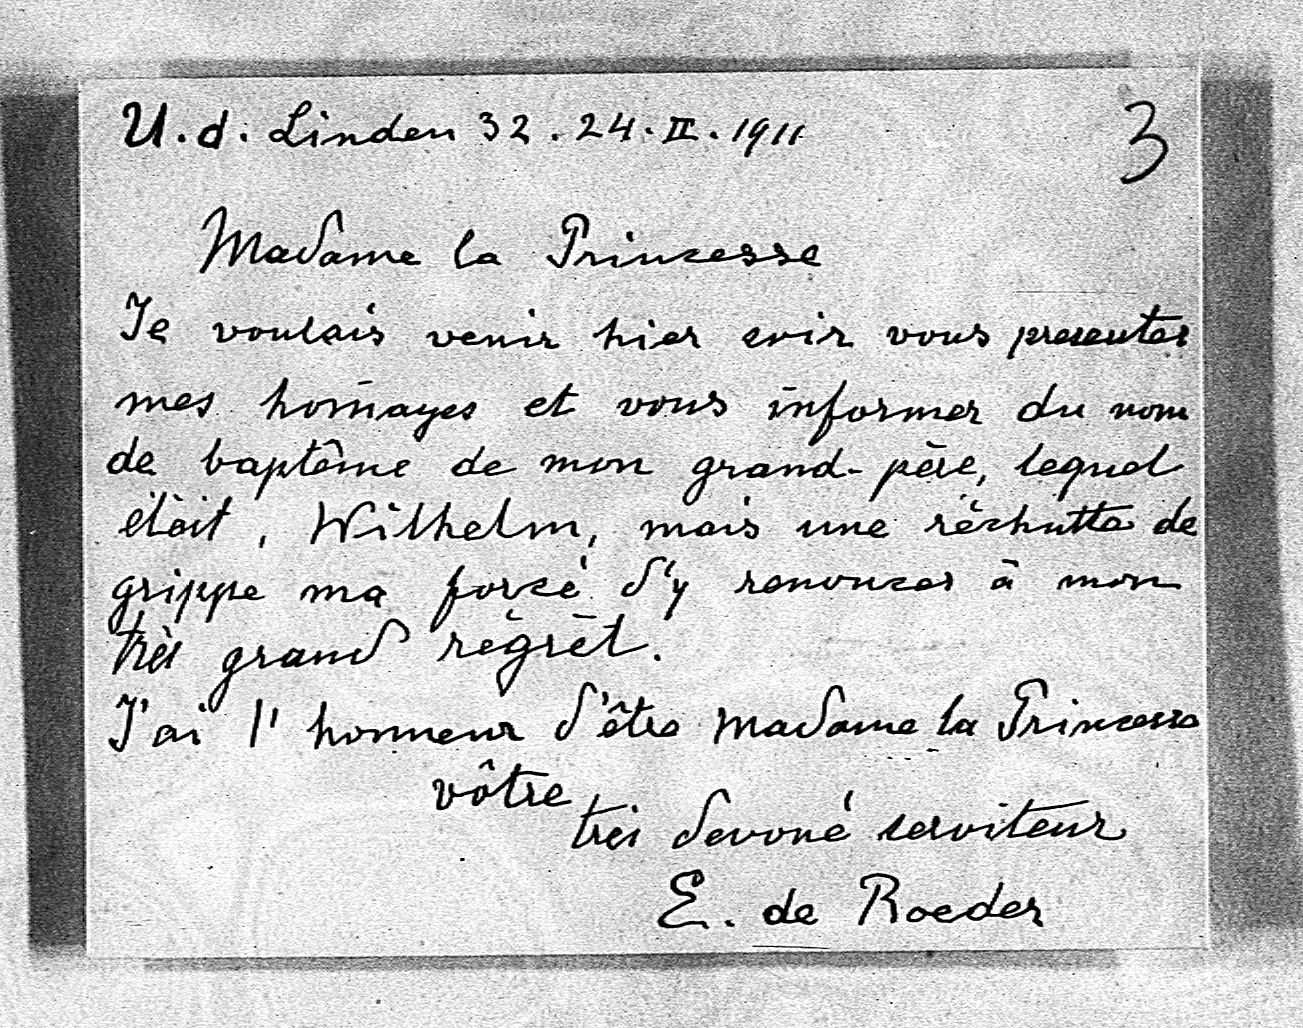 U. d. Linden 32. 24. II. 1911
3
Madame la Princesse
Je voulais venir hier soir vous presenter
mes homages et vous informer du nom
de baptême de mon grand-père, lequel
étáit, Wilhelm, mais une réchutte de
grippe ma forcé d'y renoncer à mon
très grand régrêt.
J'ai l'honneur d'être Madame la Princesse
vôtre
très devoué serviteur
E. de Roeder